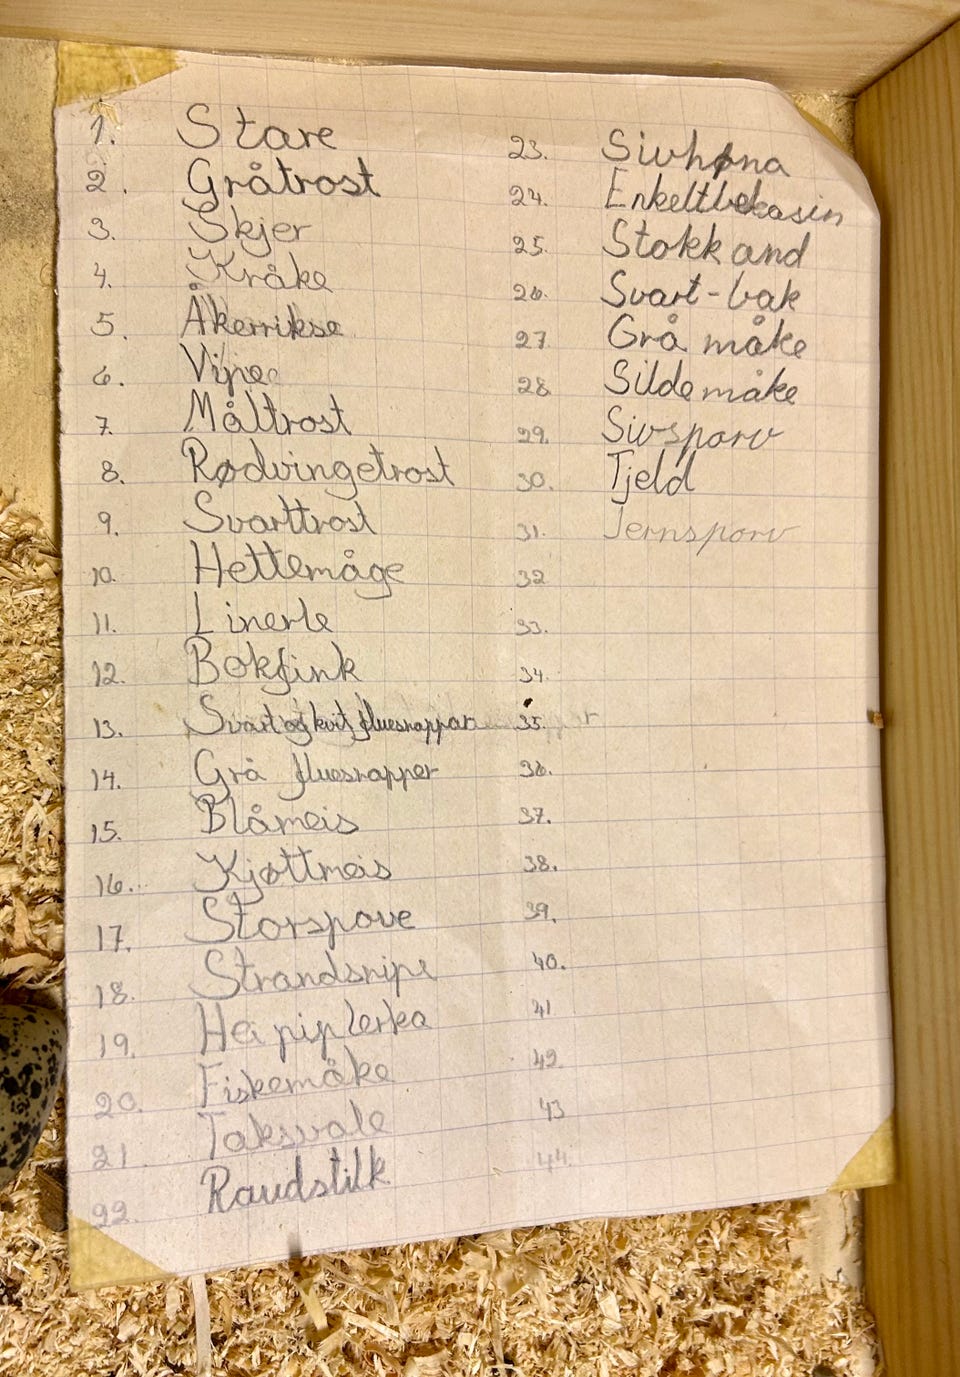 1. Stare
2. Gråtrost
3. Skjer
4. Kråke
5. Åkerrikse
6. Vipe
7. Måltrost
8. Rødvingetrost
9. Svarttrost
10. Hettemåge
11. Linerle
12. Bokfink
13. Svart og kvit fluesnappar
14. Grå fluesnapper
15. Blåmeis
16. Kjøttmeis
17. Storspove
18. Strandsnipe
19. Heipiplerka
20. Fiskemåke
21. Taksvale
22. Raudstilk
23. Sivhøna
24. Enkeltbekasin
25. Stokkand
26. Svart-bak
27. Grå måke
28. Sildemåke
29. Sivsparv
30. Tjeld
31. Jernsparv
32
33.
34.
35.
36.
37.
38.
39.
40.
41
42.
43
44.